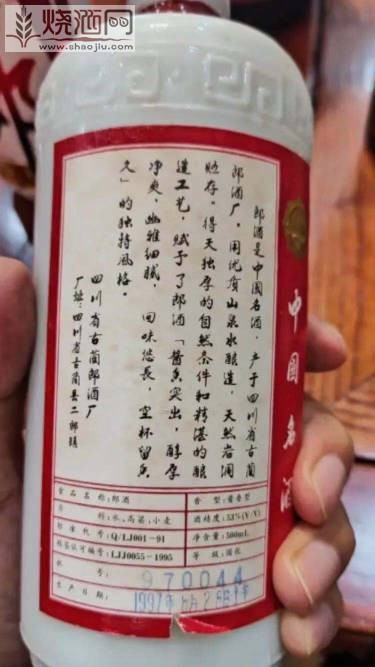 烧酒网
www.shaojiu.com
郎酒是中国名酒，产于四川省古蔺
郎酒厂。用优质山泉水酿造，天然岩洞
贮存。得天独厚的自然条件和精湛的酿
造工艺，赋予了郎酒「酱香突出，醇厚
净爽，幽雅细腻，回味悠長，空杯留香
久」的独特風格。
四川省古蔺郎酒厂
厂址：四川省古蔺县二郎镇
中国名酒
食品名称：郎酒
香型：酱香型
料：水、高粱、小麦
酒精度：53%(V/V)
标准代号：Q/LJ001-91
净含量：500mL
标签认可编号：LJJ0055-1995
等级：国优
批号：
970044
生产日期：
1997年